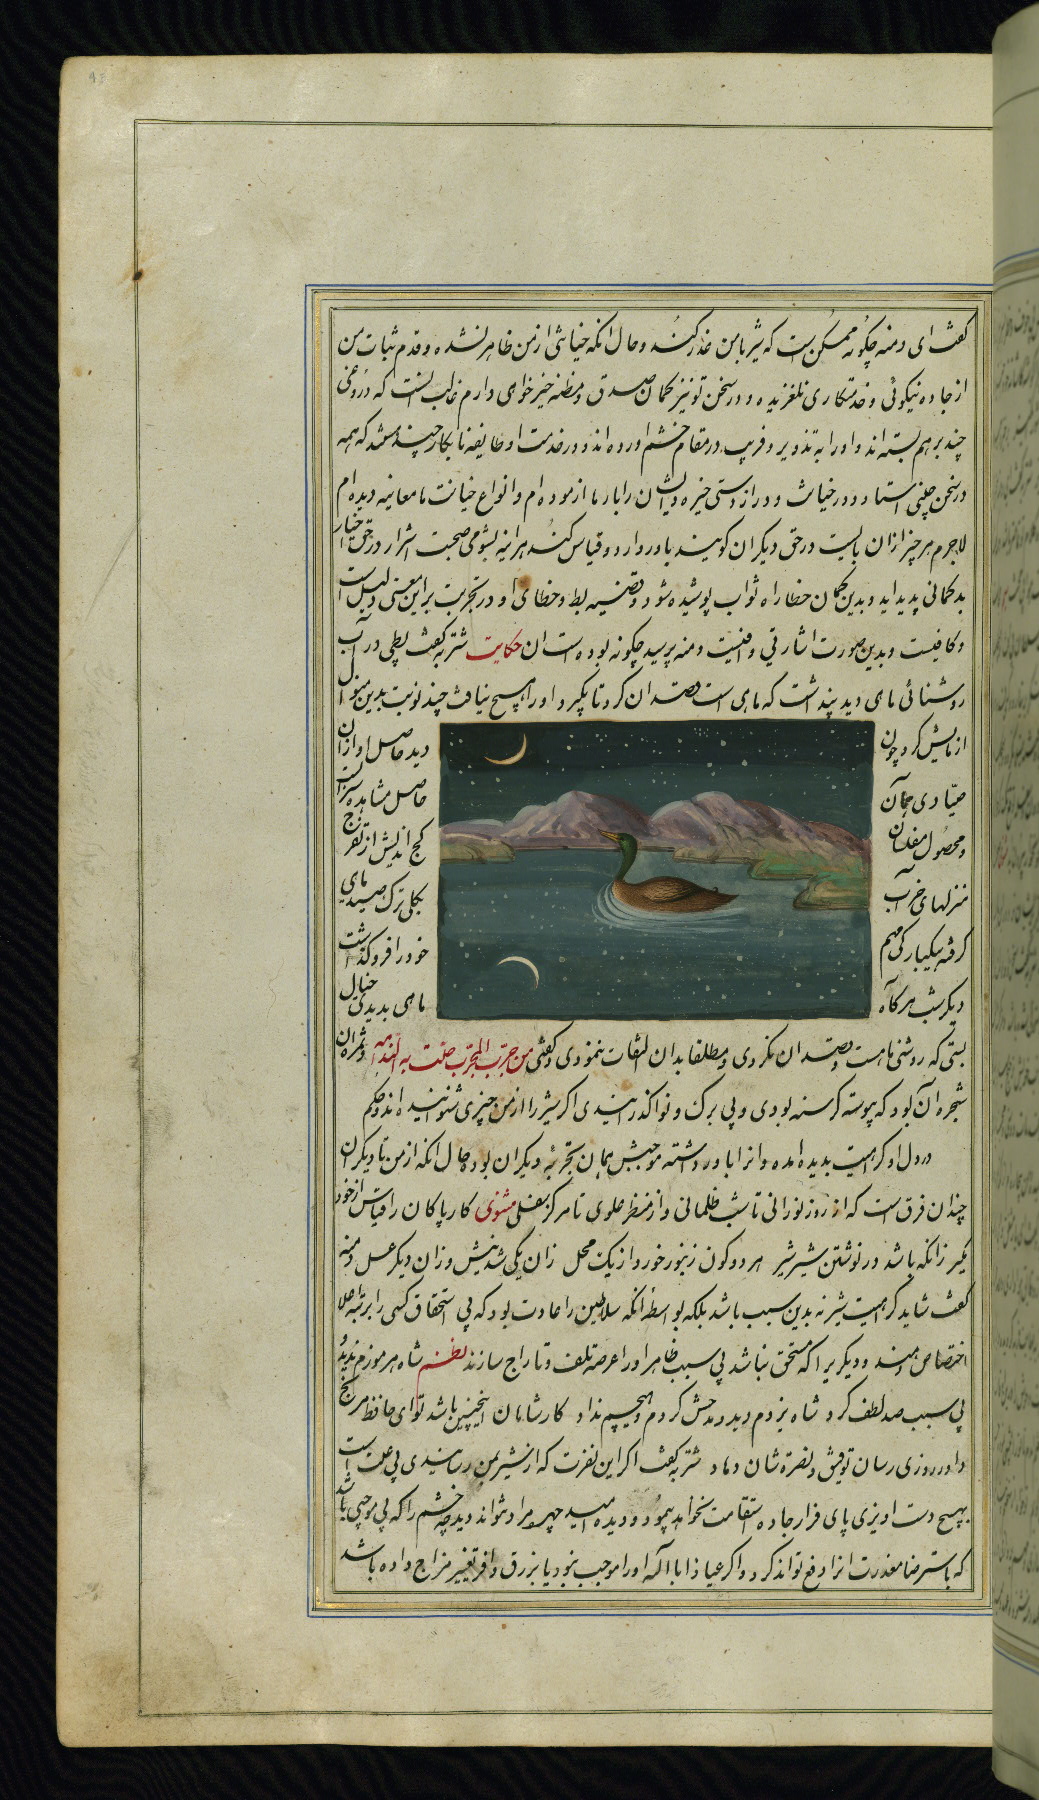 گفت ای دمنه چگونه ممکن است که شیر با من غدر کند و حال آنکه خیانتی از من ظاهر نشده و قدم ثبات من
از جاده نیکوئی و خدمتکاری نلغزیده و در سخن تو نیز گمان صدق و مظنه خیرخواهی دارم غالب آنست که دروغی
چند بر هم بسته اند و او را به تذویر و فریب در مقام خشم اورده اند و در خدمت او طایفه نابکار چند هستند که همه
در سخن چینی استاد و در خیانت و دراز دستی خیره و ایشان را بارها ازموده ام و انواع خیانت بامعاینه دیده ام
لاجرم هر چیز ازان بابت در حق دیکران کویند باور دارد و قیاس کند هراینه بشومی صحبت اشرار در حق اخیار
بدکمانی پدید اید و بدین گمان خطا راه ثواب پوشیده شود و قضیه بط و خطای او در تجربت بر این معنی دلیلست
و کافیست و بدین صورت اشارتی وافیست دمنه پرسید چکونه بوده است ان حکایت شتربه گفت بطی در آب
روشنائی ماه دید پنداشت که ماهی است قصد ان کرد تا بگیرد و او را هیچ نیافت چند نوبت بدین منوال
ازمایش کرد چون دید حاصل او ازان
صیادی همان حاصل مشاهده سرابست
و محصول مفلسان کج اندیش از تفرج
منزلهای خراب بکلی ترک صید ماهی
کرفته بیکبارکی مهم خود را فرو کذاشت
دیکر شب هرکاه ماهی بدیدی خیال
بستی که روشنی ماهست و قصد ان نکردی و مطلقا بدان التفات ننمودی و گفتی من جرب المجرب حلت به الندامه و ثمره ان
شجره آن بود که پیوسته کرسنه بودی و بی برک و نوا کذرانیدی اکر شیر را از من چیزی شنوانیده اند و حکم
در دل او کراهیت پدید امده و انرا باور داشته موجبش همان تجربه دیکران بوده و حال انکه از من تا دیکران
چندان فرق است که از روز نورانی تا شب ظلمانی و از منظر علوی تا مرکز سفلی مثنوی کار پاکان را قیاس از خود
مکیر زانکه باشد در نوشتن شیر شیر هر دو کون زنبور خورد از یک محل زان یکی شد نیش و زان دیکر عسل دمنه
گفت شاید کراهیت شیر نه بدین سبب باشد بلکه بواسطه انکه سلاطین را عادت بود که بی استحقاق کسی را بمرتبه
اختصاص دهند و دیکریرا که مستحق نباشد بی سبب ظاهر او را عرضه تلف و تاراج سازند نظم شاه هرموزم ندید و
بی سبب صد لطف کرد شاه یزدم دید و مدحش کردم و هیچم نداد کار شاهان اینچنین باشد تو ای حافظ مرنج
داور روزی رسان توفیق و نصرة شان دهاد شتربه گفت اکر این نفرت که از شیر بمن رسانیدی بی علت است
بهیچ دست اویزی پای فرا جاده استقامت نخواهد پیمود و دیده امید چهره مراد نتواند دید چه خشم را که بی موجبی باشد
که باسترضا معذرت انرا دفع تواند کرد و اکر عیاذا بالله او را موجب بود یا بزرق و افترا تغییر مزاج داده باشند